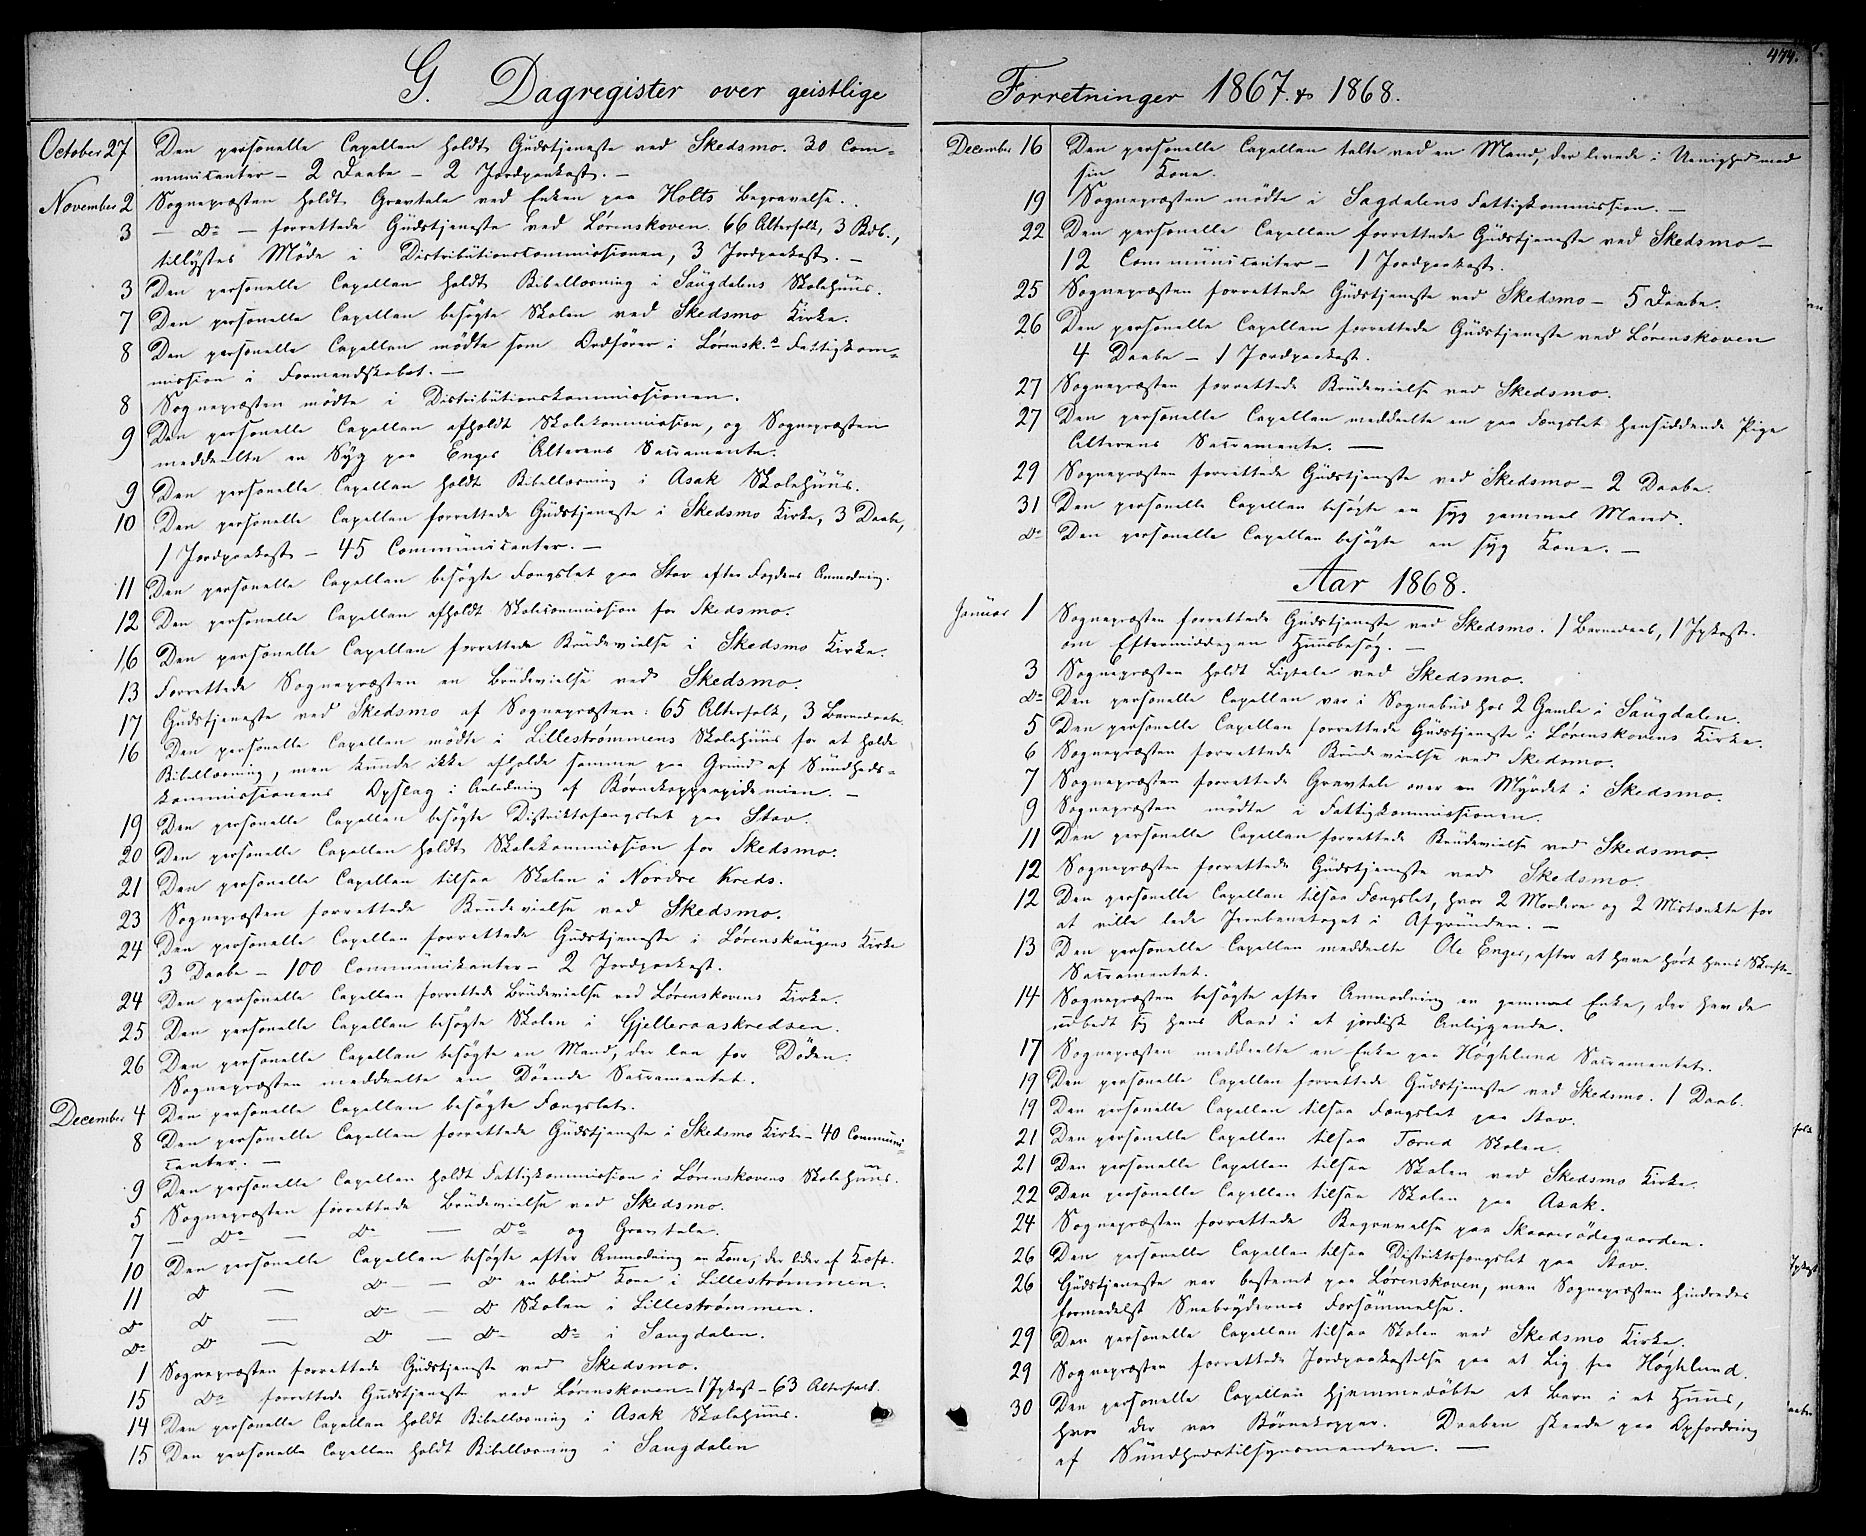 474.
G. Dagregister over geistlige
October 27 Den personelle Capellan holdt Gudstjeneste ved Skedsmo. 30 Com-
municanter – 2 Daabe – 2 Jordpaakast. –
November 2 Sognepræsten holdt Gravtale ved Enken paa Holts Begravelse.
3 – Do – forrettede Gudstjeneste ved Lørenskoven. 66 Alterfolk, 3 Bdb.,
tillystes Møde i Distributionscommissionen, 3 Jordpaakast. –
3 Den personelle Capellan holdt Bibellæsning i Saugdalens Skolehuus.
7 Den personelle Capellan besøgte Skolen ved Skedsmo Kirke.
8 Den personelle Capellan mødte som Ordfører i Lørensk.s Fattigkom-
mission i Formandskabet. –
8 Sognepræsten mødte i Distributionskommissionen.
9 Den personelle Capellan afholdt Skolekommission, og Sognepræsten
meddeelte en Syg paa Enges Alterens Sacramente.
9 Den personelle Capellan holdt Bibellæsning i Asak Skolehuus.
10 Den personelle Capellan forrettede Gudstjeneste i Skedsmo Kirke, 3 Daabe,
1 Jordpaakast – 45 Communicanter. –
11 Den personelle Capellan besøgte Fængslet paa Stav efter Fogdens Anmodning.
12 Den personelle Capellan afholdt Skolecommission for Skedsmo.
16 Den personelle Capellan forrettede Brudevielse i Skedsmo Kirke.
13 Forrettede Sognepræsten en Brudevielse ved Skedsmo.
17 Gudstjeneste ved Skedsmo af Sognepræsten: 65 Alterfolk, 3 Barnedaabe.
16 Den personelle Capellan mødte i Lillestrømmens Skolehuus for at holde
Bibellæsning, men kunde ikke afholde samme paa Grund af Sundheds-
kommissionens Opslag i Anledning af Børnekoppeepidemien. –
19 Den personelle Capellan besøgte Distriktsfængslet paa Stav.
20 Den personelle Capellan holdt Skolekommission for Skedsmo.
21 Den personelle Capellan tilsaa Skolen i Nordre Kreds.
23 Sognepræsten forrettede Brudevielse ved Skedsmo.
24 Den personelle Capellan forrettede Gudstjeneste i Lørenskaugens Kirke
3 Daabe – 100 Communikanter – 2 Jordpaakast.
24 Den personelle Capellan forrettede Brudevielse ved Lørenskovens Kirke.
25 Den personelle Capellan besøgte Skolen i Gjelleraaskredsen.
26 Den personelle Capellan besøgte en Mand, der laa for Døden.
Sognepræsten meddeelte en Døende Sacramentet.
December 4 Den personelle Capellan besøgte Fængslet.
8 Den personelle Capellan forrettede Gudstjeneste i Skedsmo Kirke – 40 Communi-
canter. –
9 Den personelle Capellan holdt Fattigkommission i Lørenskovens Skolehuus.
5 Sognepræsten forrettede Brudevielse ved Skedsmo.
7 – Do – Do – Do og Gravtale.
10 Den personelle Capellan besøgte efter Anmodning en Kone, der lider af Kræft.
11 Do – Do – Do en blind Kone i Lillestrømmen.
Do Do – Do – Do Skolen i Lillestrømmen.
Do Do – Do – Do – Do i Saugdalen.
1 Sognepræsten forrettede Gudstjeneste ved Skedsmo.
15 Do forrettede Gudstjeneste ved Lørenskoven – 1 Jpkast – 63 Alterfolk.
14 Den personelle Capellan holdt Bibellæsning i Asak Skolehuus.
15 Den personelle Capellan holdt Bibellæsning i Saugdalen
Forretninger 1867. & 1868.
December 16 Den personelle Capellan talte ved en Mand, der levede i Uenighed med
sin Kone.
19 Sognepræsten mødte i Sagdalens Fattigkommission. –
22 Den personelle Capellan forrettede Gudstjeneste ved Skedsmo –
12 Communicanter – 1 Jordpaakast.
25 Sognepræsten forrettede Gudstjeneste ved Skedsmo – 5 Daabe.
26 Den personelle Capellan forrettede Gudstjeneste ved Lørenskoven
4 Daabe – 1 Jordpaakast.
27 Sognepræsten forrettede Brudevielse ved Skedsmo.
27 Den personelle Capellan meddeelte en paa Fængslet hensiddende Pige
Alterens Sacramente. –
29 Sognepræsten forrettede Gudstjeneste ved Skedsmo – 2 Daabe.
31 Den personelle Capellan besøgte en syg gammel Mand.
Do Den personelle Capellan besøgte en syg Kone. –
Aar 1868.
Januar 1 Sognepræsten forrettede Gudstjeneste ved Skedsmo. 1 Barnedaab, 1 Jpkast.
om Eftermiddagen Huusbesøg. –
3 Sognepræsten holdt Ligtale ved Skedsmo.
Do Den personelle Capellan var i Sognebud hos 2 Gamle i Saugdalen.
5 Den personelle Capellan forrettede Gudstjeneste i Lørenskovens Kirke.
6 Sognepræsten forrettede Brudevielse ved Skedsmo.
7 Sognepræsten forrettede Gravtale over en Myrdet i Skedsmo.
9 Sognepræsten mødte i Fattigkommissionen.
11 Den personelle Capellan forrettede Brudevielse ved Skedsmo.
12 Sognepræsten forrettede Gudstjeneste ved Skedsmo.
12 Den personelle Capellan tilsaa Fængslet, hvor 2 Mordere og 2 Mistænkte for
at ville lede Jernbanetoget i Afgrunden. –
13 Den personelle Capellan meddeelte Ole Enger, efter at have hørt hans Skrifte-
Sacramentet.
14 Sognepræsten besøgte efter Anmodning en gammel Enke, der havde
udbedt sig hans Raad i et jordisk Anliggende.
17 Sognepræsten meddeelte en Enke paa Høghlund Sacramentet.
19 Den personelle Capellan forrettede Gudstjeneste ved Skedsmo. 1 Daab.
19 Den personelle Capellan tilsaa Fængslet paa Stav.
21 Den personelle Capellan tilsaa Tærud Skolen.
21 Den personelle Capellan tilsaa Skolen ved Skedsmo Kirke.
22 Den personelle Capellan tilsaa Skolen paa Asak.
24 Sognepræsten forrettede Begravelse paa Skaarerødegaarden.
26 Den personelle Capellan tilsaa Distriktsfængslet paa Stav.
26 Gudstjeneste var bestemt paa Lørenskoven, men Sognepræsten hindredes
formedelst Snebrydernes Forsømmelse.
29 Den personelle Capellan tilsaa Skolen ved Skedsmo Kirke.
29 Sognepræsten forrettede Jordpaakastelse paa et Lig fra Høghlund.
30 Den personelle Capellan hjemmedøbte et Barn i et Huus,
hvor der var Børnekopper. Daaben skeede paa Opfordring
af Sundhedstilsynsmanden. –